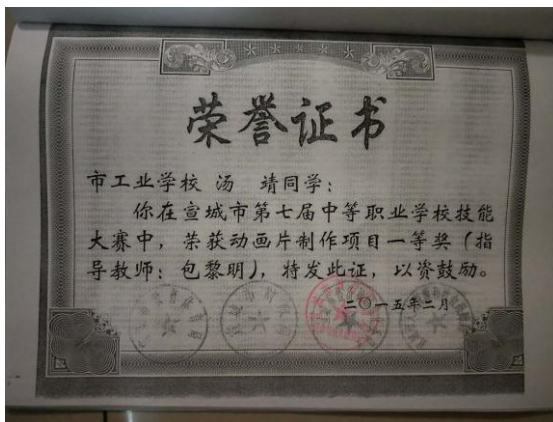 荣誉证书
市工业学校 汤 靖同学:
你在宣城市第七届中等职业学校技能
大赛中，荣获动画片制作项目一等奖（指
导教师：包黎明），特发此证，以资鼓励。
二〇一五年二月